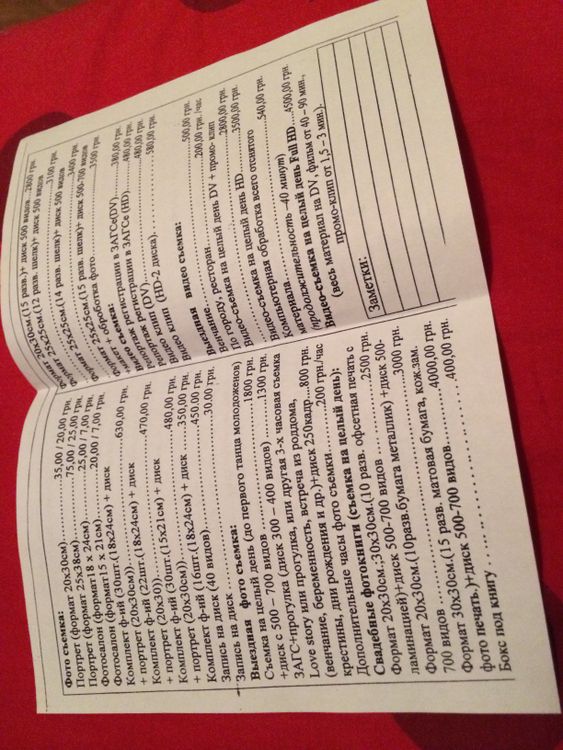 Фото съемка:
Портрет (формат 20х30см)..........35,00 / 20,00 грн.
Портрет (формат 25х38см)..........75,00 / 25,00 грн.
Портрет (формат18 х 24см)..........25,00 / 7,00 грн.
Фотосалон (формат15 х 21см)..........20,00 / 7,00 грн.
Комплект ф-ий (30шт.(18х24см) + диск
+ портрет (20х30см)..........630,00 грн.
Комплект ф-ий (22шт.(18х24см) + диск
+ портрет (20х30))..........470,00 грн.
Комплект ф-ий (30шт.(15х21см) + диск
+ портрет (20х30см))..........480,00 грн.
Комплект ф-ий (16шт.(18х24см) + диск ....350,00 грн.
Комплект на диск (40 видов)..........450,00 грн.
Запись на диск ..........30,00 грн.
Выездная фото съемка:
Съемка на целый день (до первого танца молодоженов)
+диск с 500 – 700 видов ..........1800 грн.
ЗАГС+прогулка (диск 300 – 400 видов) ..........1300 грн.
Love story или прогулка, или другая 3-х часовая съемка
(венчание, беременность, встреча из роддома,
крестины, дни рождения и др.)+диск 250кадр....800 грн.
Дополнительные часы фото съемки..........200 грн./час
Свадебные фотокниги (съемка на целый день):
Формат 20х30см.;30х30см.(10 разв. офсетная печать с
ламинацией)+диск 500-700 видов ..........2500 грн.
Формат 20х30см.(10разв.бумага металлик) +диск 500-
700 видов ..........3000 грн.
Формат 30х30см.(15 разв. матовая бумага, кож.зам.
фото печать.)+диск 500-700 видов..........4000,00 грн.
Бокс под книгу ..........400,00 грн.
20х30см.(15 разв.)+ диск 500 видов....2800 грн.
25х25см.(12 разв. шелк)+ диск 500 видов
..........3100 грн.
25х25см.(14 разв. шелк)+ диск 500 видов
..........3400 грн.
25х25см.(15 разв. шелк)+ диск 500-700 видов
+ обработка фото..........3500 грн.
съемка:
регистрации в ЗАГСе(DV)..........380,00 грн.
регистрации в ЗАГСе (HD)..........480,00 грн.
клип (DV)..........480,00 грн.
Видео клип (HD-2 диска)..........580,00 грн.
Выездная видео съемка:
Венчание..........500,00 грн.
Венчание, ресторан..........200,00 грн./час
По городу, съемка на целый день DV + промо- клип
..........2800,00 грн.
Видео-съемка на целый день HD..........3500,00 грн.
Компьютерная обработка всего отснятого
материала..........540,00 грн.
(продолжительность –40 минут)
Видео-съемка на целый день Full HD..........4500,00 грн.
(весь материал на DV, фильм от 40 – 90 мин.,
промо-клип от 1,5 – 3 мин.).
Заметки: